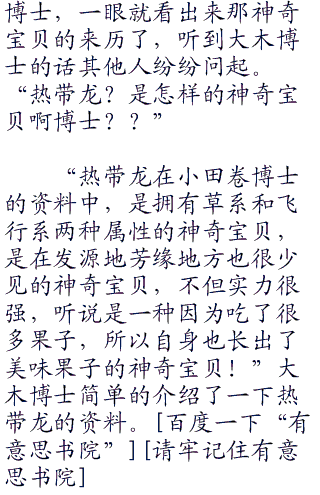 博士，一眼就看出来那神奇
宝贝的来历了，听到大木博
士的话其他人纷纷问起。
“热带龙？是怎样的神奇宝
贝啊博士？？”
“热带龙在小田卷博士
的资料中，是拥有草系和飞
行系两种属性的神奇宝贝，
是在发源地芳缘地方也很少
见的神奇宝贝，不但实力很
强，听说是一种因为吃了很
多果子，所以自身也长出了
美味果子的神奇宝贝！”大
木博士简单的介绍了一下热
带龙的资料。[百度一下“有
意思书院”][请牢记住有意
思书院]